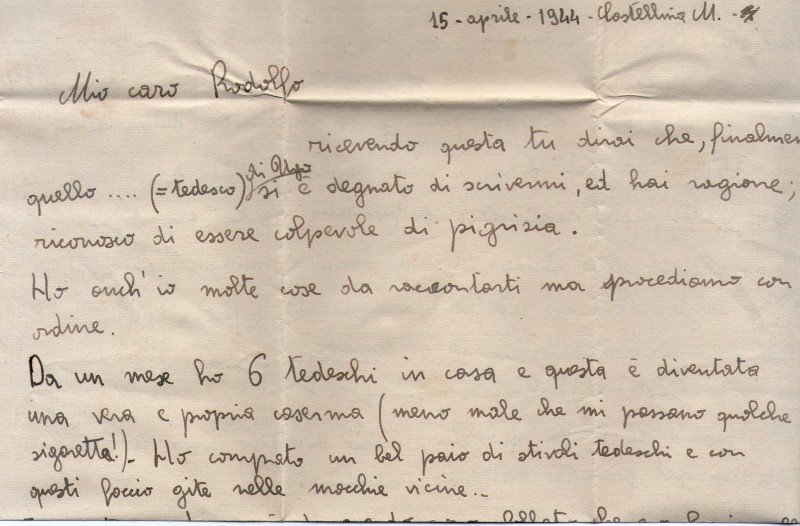 15 - aprile - 1944 - Castellina M. -
Mio caro Rodolfo
ricevendo questa tu dirai che, finalmen
quello .... (= tedesco) di Ugo si è degnato di scrivermi, ed hai ragione;
riconosco di essere colpevole di pigrizia.
Ho anch'io molte cose da raccontarti ma procediamo con
ordine.
Da un mese ho 6 tedeschi in casa e questa è diventata
una vera e propria caserma (meno male che mi passano qualche
sigaretta!). Ho comprato un bel paio di stivali tedeschi e con
questi faccio gite nelle macchie vicine..